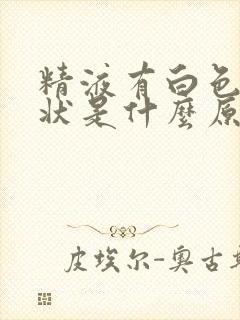 精液有白色
状是什麼原
皮埃尔-奥古